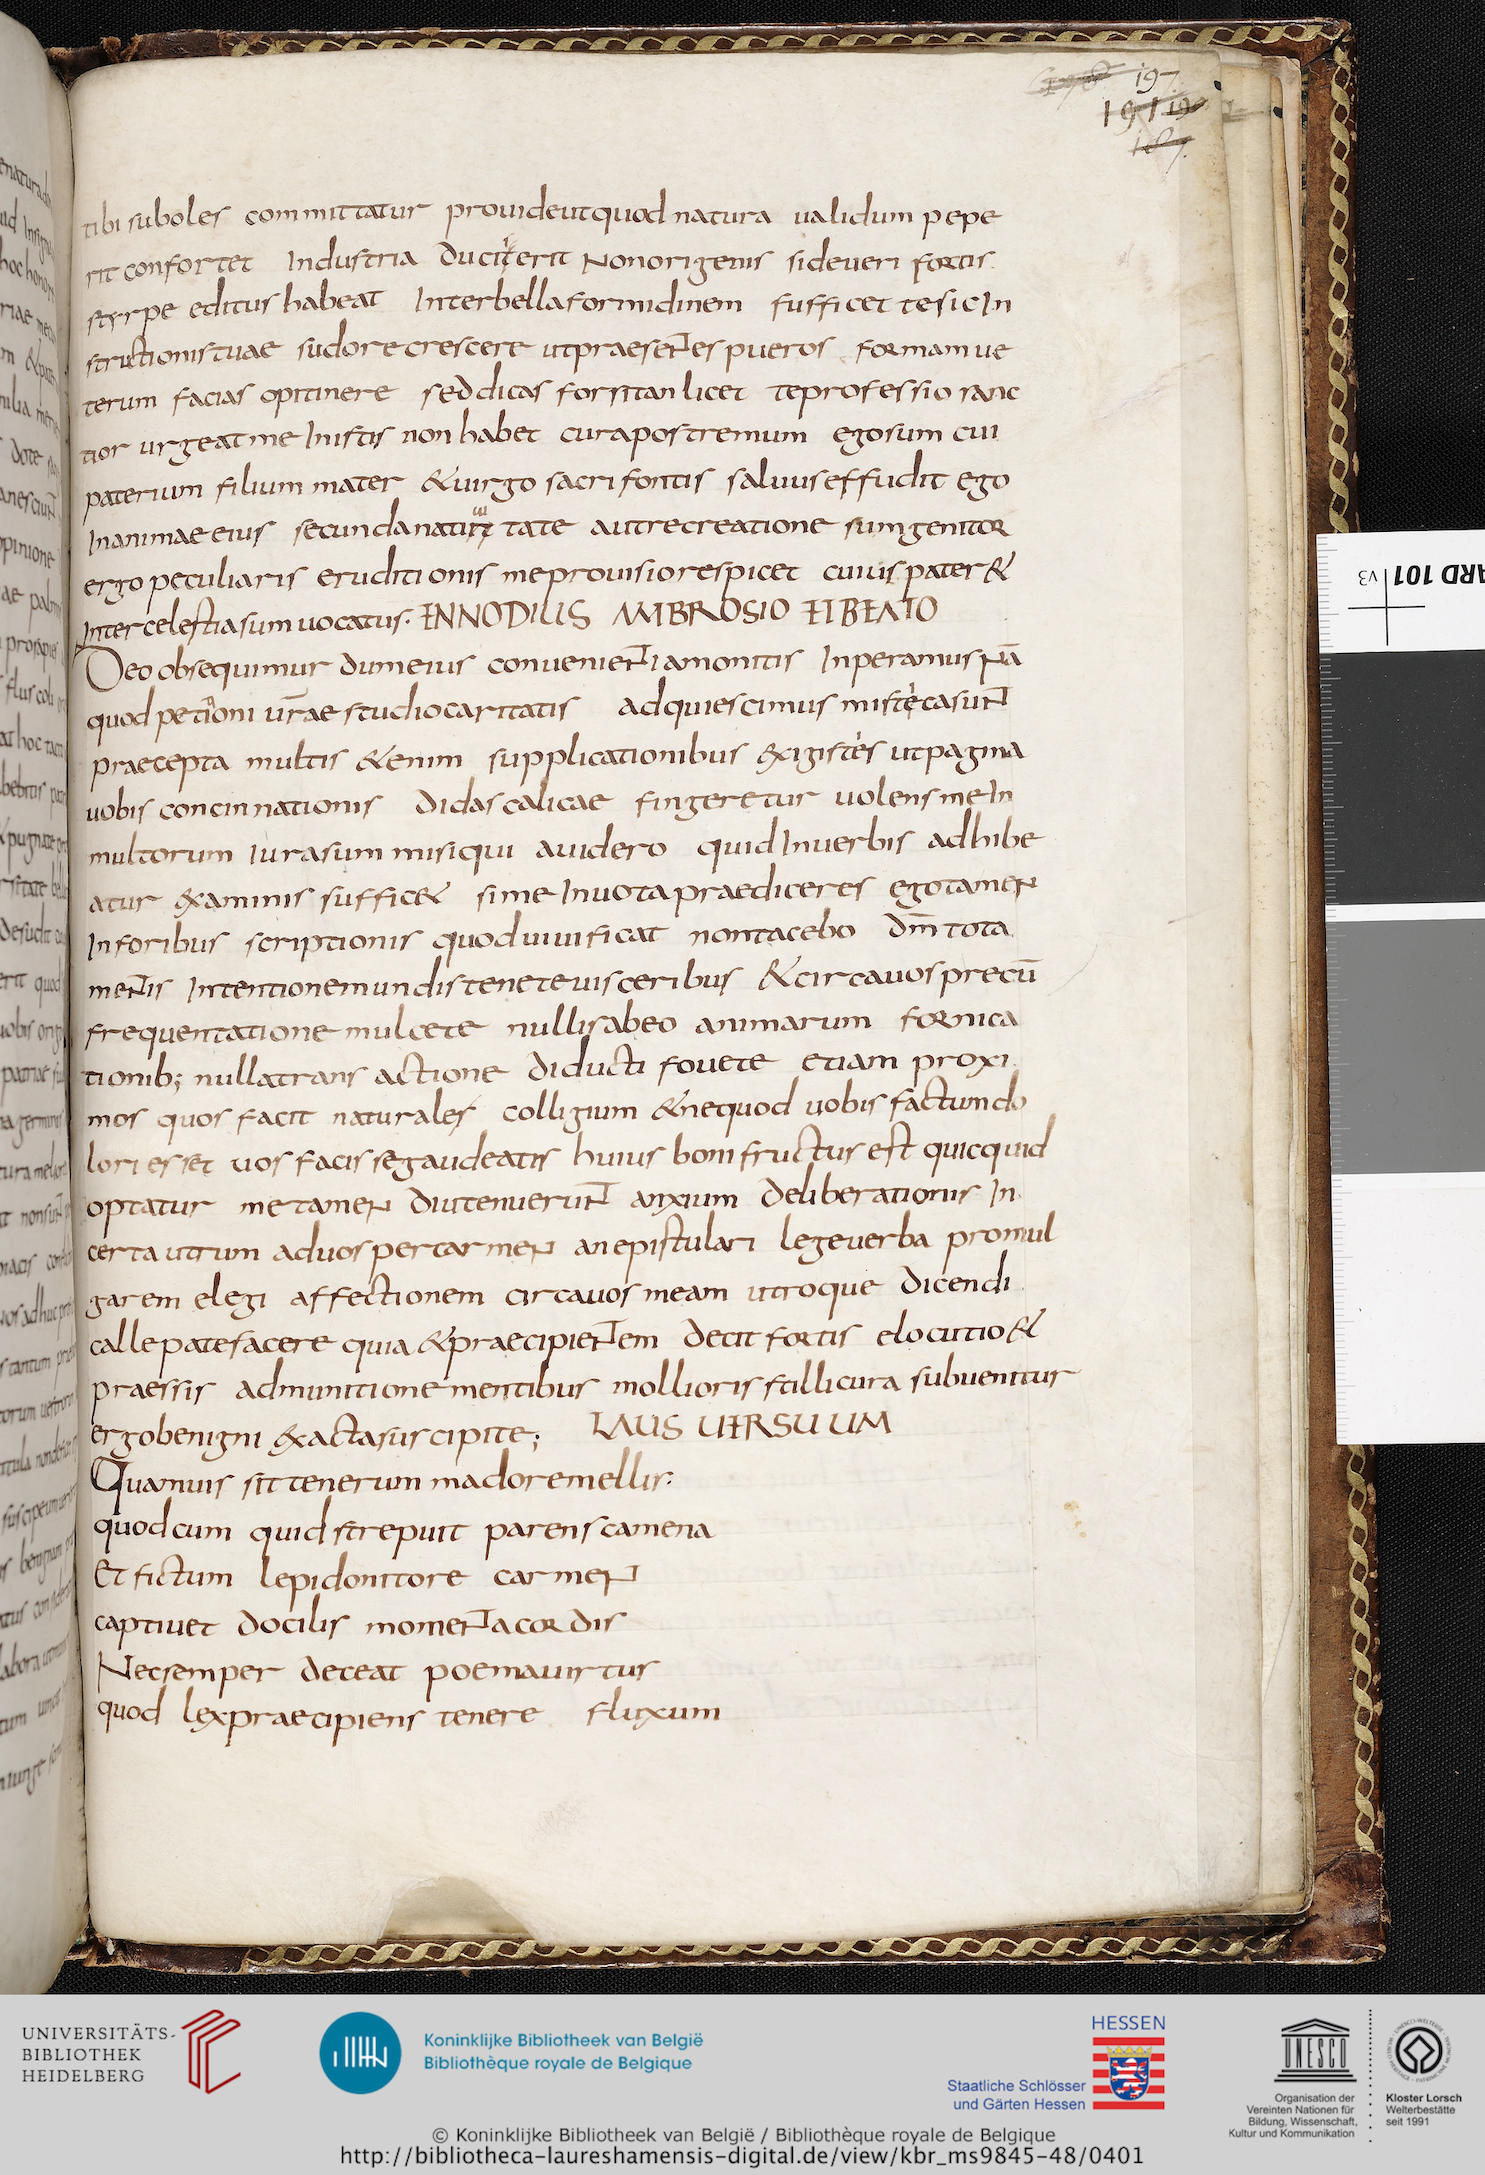 197
191
tibi suboles committatur prouideut quod natura ualidum pepe
rit confortet Industria ducit erit Non origenis side ueri fortis
styrpe editus habeat Inter bella formidinem sufficet te sic In
structionis tuae sudore crescere ut praesentes pueros formam ue
terum facias optinere sed dicas forsitan licet te professio sanc
tior urgeat me In istis non habet cura postremum ego sum cui
paterium filium mater & uirgo sacri fontis saluus effudit ego
In animae eius secunda natiui tate aut recreatione sum genitor
ergo peculiaris eruditionis me prouisio respicet cuius pater &
Inter celestia sum uocatus. ENNODIUS AMBROSIO ET BEATO
Deo obsequimur dum eius conuenienti amonitis Inperamus Nā
quod petitioni ur̄ae studio caritatis adquiescimus misticasunt
praecepta multis &enim supplicationibus exigistis ut pagina
uobis concinnationis didascalicae fingeretur uolens me In
multorum Iura summisi qui auidero quid In uerbis adhibe
atur examinis suffic& si me In uota praediceres ego tamen
In foribus scriptionis quod uiuificat non tacebo dm̄ tota
mentis Intentione mundis tenete uisceribus & circa uos precū
frequentatione mulcete nullis ab eo animarum fornica
tionib; nulla transactione diducti fouete etiam proxi
mos quos facit naturales colligium & nequod uobis factum do
lori esset uos facis se gaudeatis huius boni fructus est quicquid
optatur me tamen diu tenuerunt anxium deliberationis In
certa utrum ad uos per carmen an epistulari lege uerba promul
garem elegi affectionem circa uos meam utroque dicendi
calle patefacere quia & praecipientem decit fortis elocutio &
praessis admunitione mentibus mollioris stilli cura subuenitur
ergo benigni exacta suscipite; LAUS UERSUUM
Quamuis sit tenerum madore mellis:
quod cum quid strepuit parens camena
Et fictum lepido nitore carmen
captiuet docilis momenta cordis
Nec semper deceat poema uirtus
quod lex praecipiens tenere fluxum
ARD 101 v3
UNIVERSITÄTS-
BIBLIOTHEK
HEIDELBERG
Koninklijke Bibliotheek van België
Bibliothèque royale de Belgique
HESSEN
Staatliche Schlösser
und Gärten Hessen
UNESCO
Organisation der
Vereinten Nationen für
Bildung, Wissenschaft,
Kultur und Kommunikation
Kloster Lorsch
Welterbestätte
seit 1991
© Koninklijke Bibliotheek van België / Bibliothèque royale de Belgique
http://bibliotheca-laureshamensis-digital.de/view/kbr_ms9845-48/0401